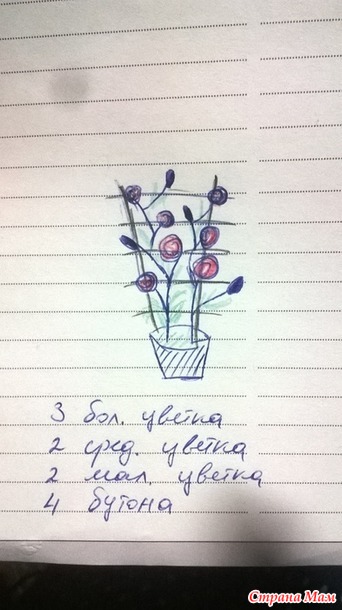 3 бол. цветка
2 сред. цветка
2 мал. цветка
4 бутона
Страна Мам